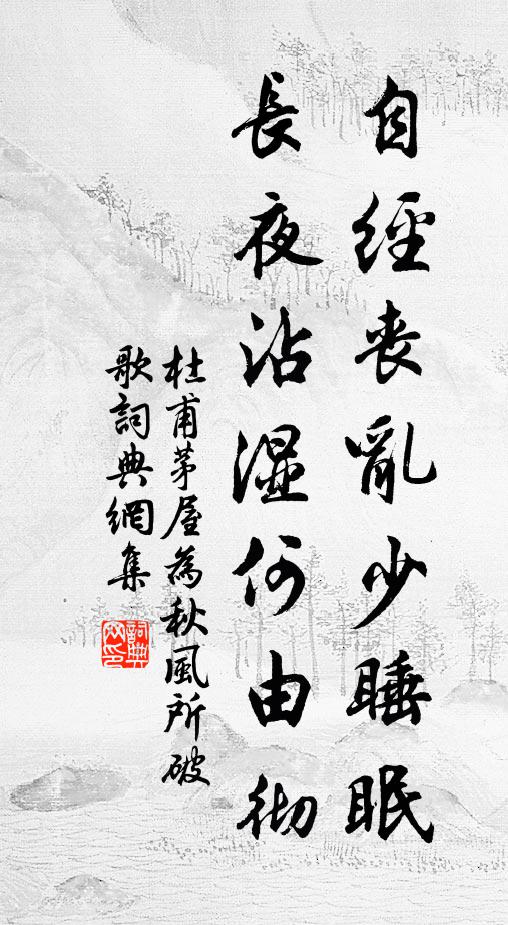 自經喪亂少睡眠
長夜沾濕何由彻
杜甫茅屋為秋風所破
歌詞典網集
詞典网印